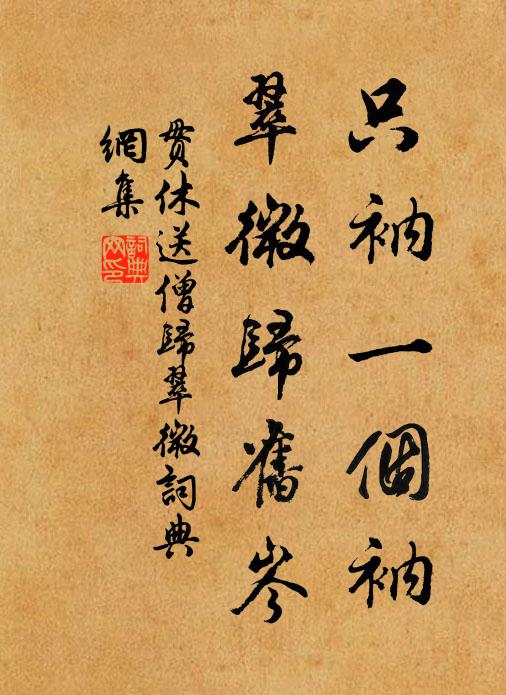 只衲一個衲
翠微歸舊岑
貫休送僧歸翠微詞典
網集
詞典
网印